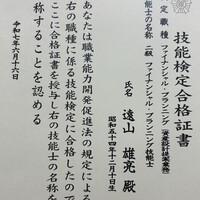 技能検定合格証書
定職種 ファイナンシャル・プランニング(資産設計提案業務)
能士の名称 二級ファイナンシャル・プランニング技能士
氏名 遠山 雄亮 殿
昭和五十四年十二月十日生
あなたは職業能力開発促進法の規定によ
右の職種に係る技能検定に合格したので
ここに合格証書を授与し右の技能士の名称を
称することを認める
令和七年六月十六日